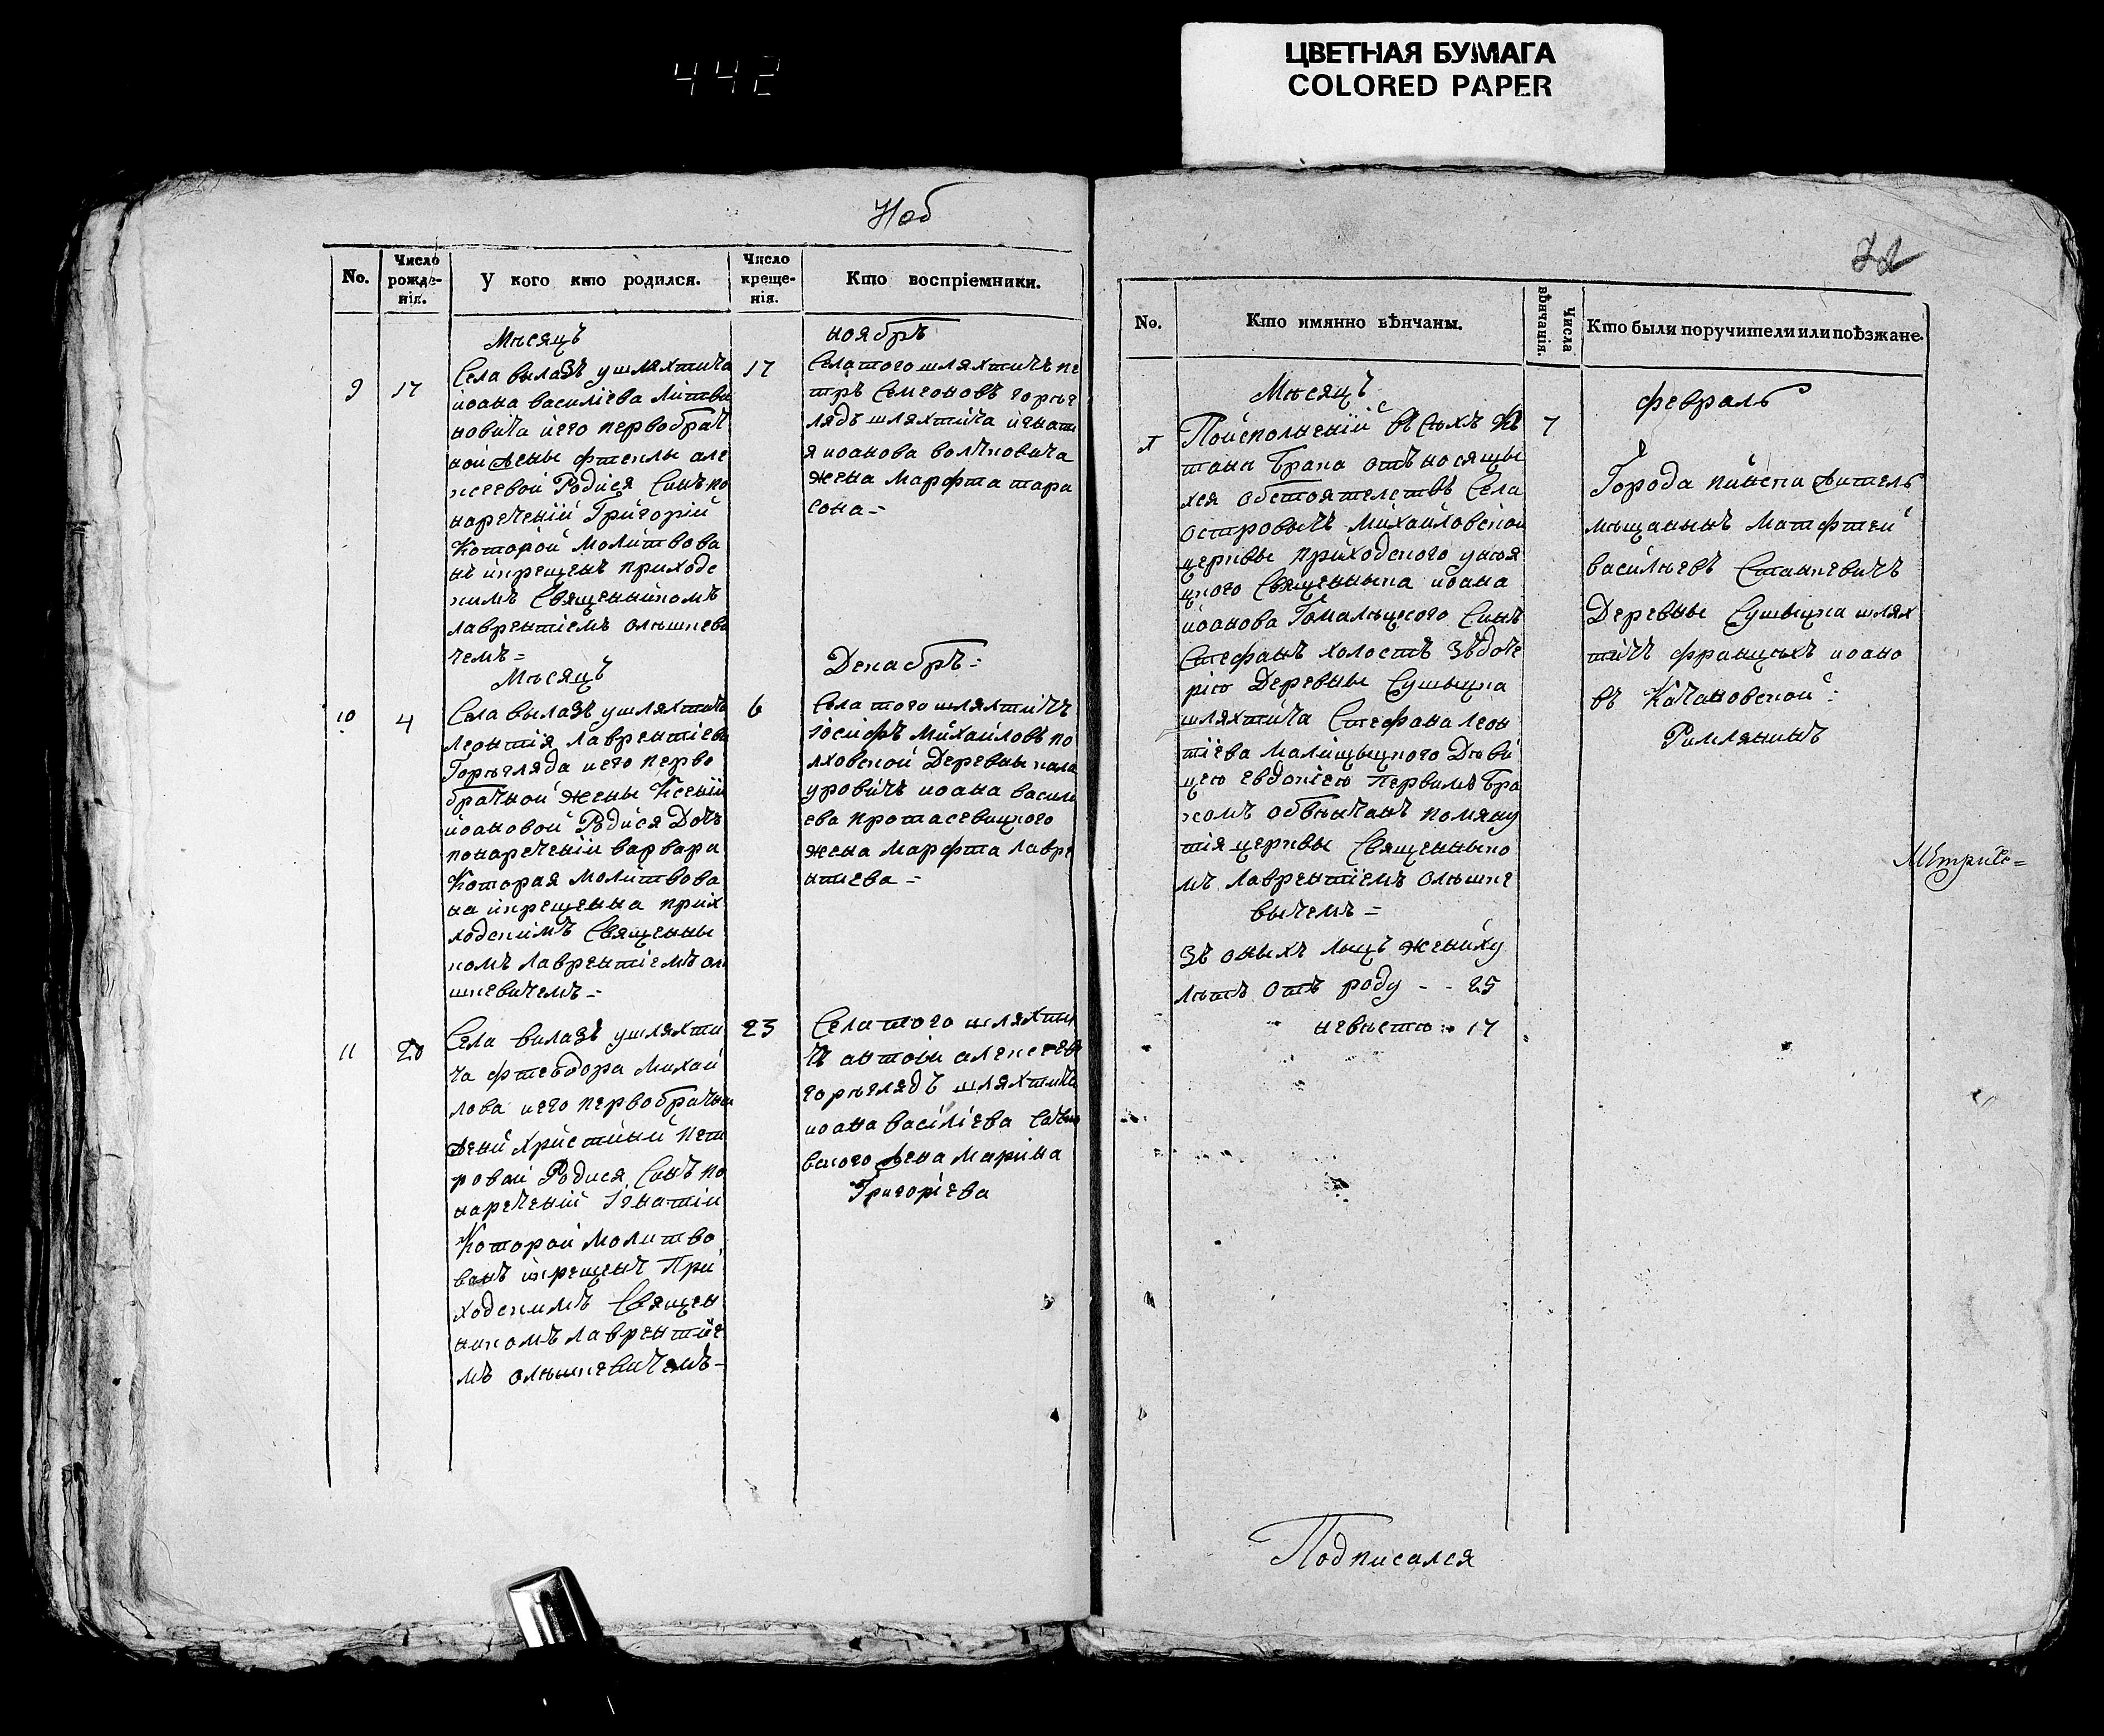 442
ЦВЕТНАЯ БУМАГА
COLORED PAPER
No.
Число рожде-нія.
У кого кто родился.
Число креще-нія.
Кто воспріемники.
Мѣсяцъ
ноябрь
9
17
Села вылазъ у шляхтича
иоана василіева Литви
новича и его первобрач
ной жены фтеклы але
ксеевой Родися Синъ по
нареченій Григорій
Которой молитвова
нъ икрещенъ приходс
кимъ Священикомъ
лаврентіемъ
чемъ =
17
Села того шляхтичъ пе
тръ Семеоновъ горегля
лядъ шляхтича игнати
я иоанова
жена марфта тара
сова =
Мѣсяцъ
Декабрь =
10
4
Села вылазъ у шляхтича
леонтія лаврентіева
Горегляда и его перво
брачной жены Ксеніи
иоановой Родися Дочъ
понареченіи варвара
Которая молитвова
на икрещенна прих
ходскимъ Священны
комъ лаврентіемъ ол
шкевичемъ =
6
Села того шляхтичъ
іосифъ михаиловъ по
лховской Деревны кала
уровичъ иоана васили
ева протасевицкого
жена марфта лавре
нтиева =
11
20
Села вилазъ у шляхти
ча фтеодора михаи
лова и его первобрачны
жени христиныи пет
ровои Родися Синъ по
нареченій Ігнатіи
Которои молитво
ванъ икрещенъ При
ходскимъ Священ
никомъ лаврентіе
мъ олешкевичемъ -
23
Села того шляхти
чъ антоіи алексеев
гореглядъ шляхтича
иоана васіліева
вского жена марина
Григоріева
No.
Кто имянно вѣнчаны.
Числа вѣнчанія.
Кто были поручители или поѣзжане.
Мѣсяцъ
февраль
Поисполненіи всѣхъ
тани брака относящы
хся обстоятелствъ Села
островычъ михаиловской
церквы приходского
цкого Священныка иоана
иоанова Гомалыцкого Синъ
Стефанъ холостъ Зъдоче
рію Деревны Сушыцка
шляхтича Стефана леон
тіева малищыцкого Дѣви
цею евдокіею первимъ бра
комъ обвѣнчанъ помяну
тія церквы Священныко
мъ лаврентіемъ олешке
вычемъ =
Зъ оныхъ лыцъ жениху
лѣтъ отъ роду - - 25
невѣстѣ - 17
7
Города пинска житель
мѣщанинъ матфтей
васильевъ Станкевичъ
Деревны Сушыцка шлях
тичъ францыхъ иоано
въ Качановской =
Римлянинъ
Подписался